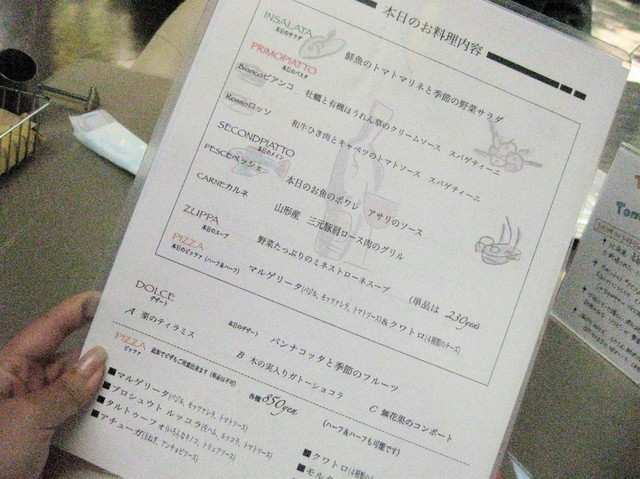 本日のお料理内容
INSALATA 鮮魚のトマトマリネと季節の野菜サラダ
本日のサラダ
PRIMOPIATTO
本日のパスタ
Biancoビアンコ 牡蠣と有機ほうれん草のクリームソース スパゲティーニ
Rossoロッソ 和牛ひき肉とキャベツのトマトソース スパゲティーニ
SECONDPIATTO
本日のメイン
PESCEペッシェ 本日のお魚のポワレ アサリのソース
CARNEカルネ 山形産 三元豚肩ロース肉のグリル
ZUPPA 野菜たっぷりのミネストローネスープ (単品は 230yen)
本日のスープ
PIZZA マルゲリータ(バジル、モッツァレラ、トマトソース)&クワトロ(4種類のチーズ)
本日のピッツァ (ハーフ&ハーフ)
DOLCE 本日のデザート パンナコッタと季節のフルーツ
デザート
A 栗のティラミス B 木の実入りガトーショコラ C 無花果のコンポート
PIZZA 追加でピザもご用意出来ます (単品は不可) 各種 850yen (ハーフ&ハーフも可能です)
ピッツァ
■マルゲリータ(バジル、モッツァレラ、トマトソース) ■クワトロ(4種類の
■プロシュウト ルッコラ(生ハム、ルッコラ、トマトソース) ■モルタ
■タルトゥーフォ(いろんなキノコ、トリュフソース)
■アチューガ(玉ねぎ、アンチョビソース)